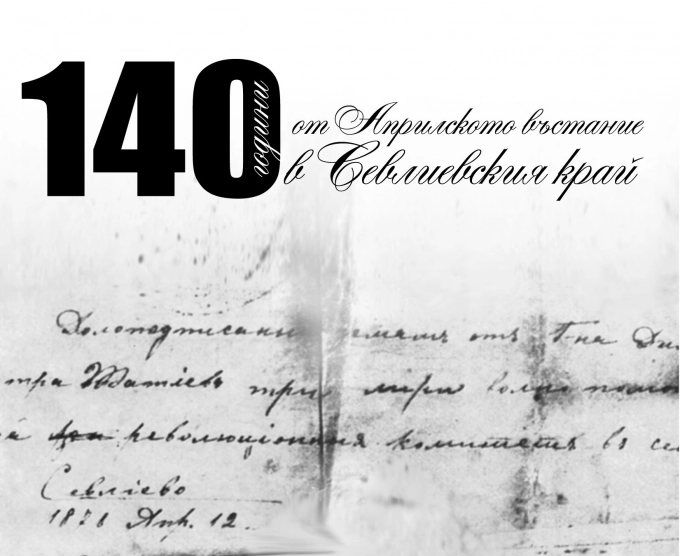 140 години от Априлското въстание
в Севлиевския край
Долоподписаны от Г-на Ди
тра три лири
революціонния комитетъ въ се
Севліево
1876 Апр. 12.